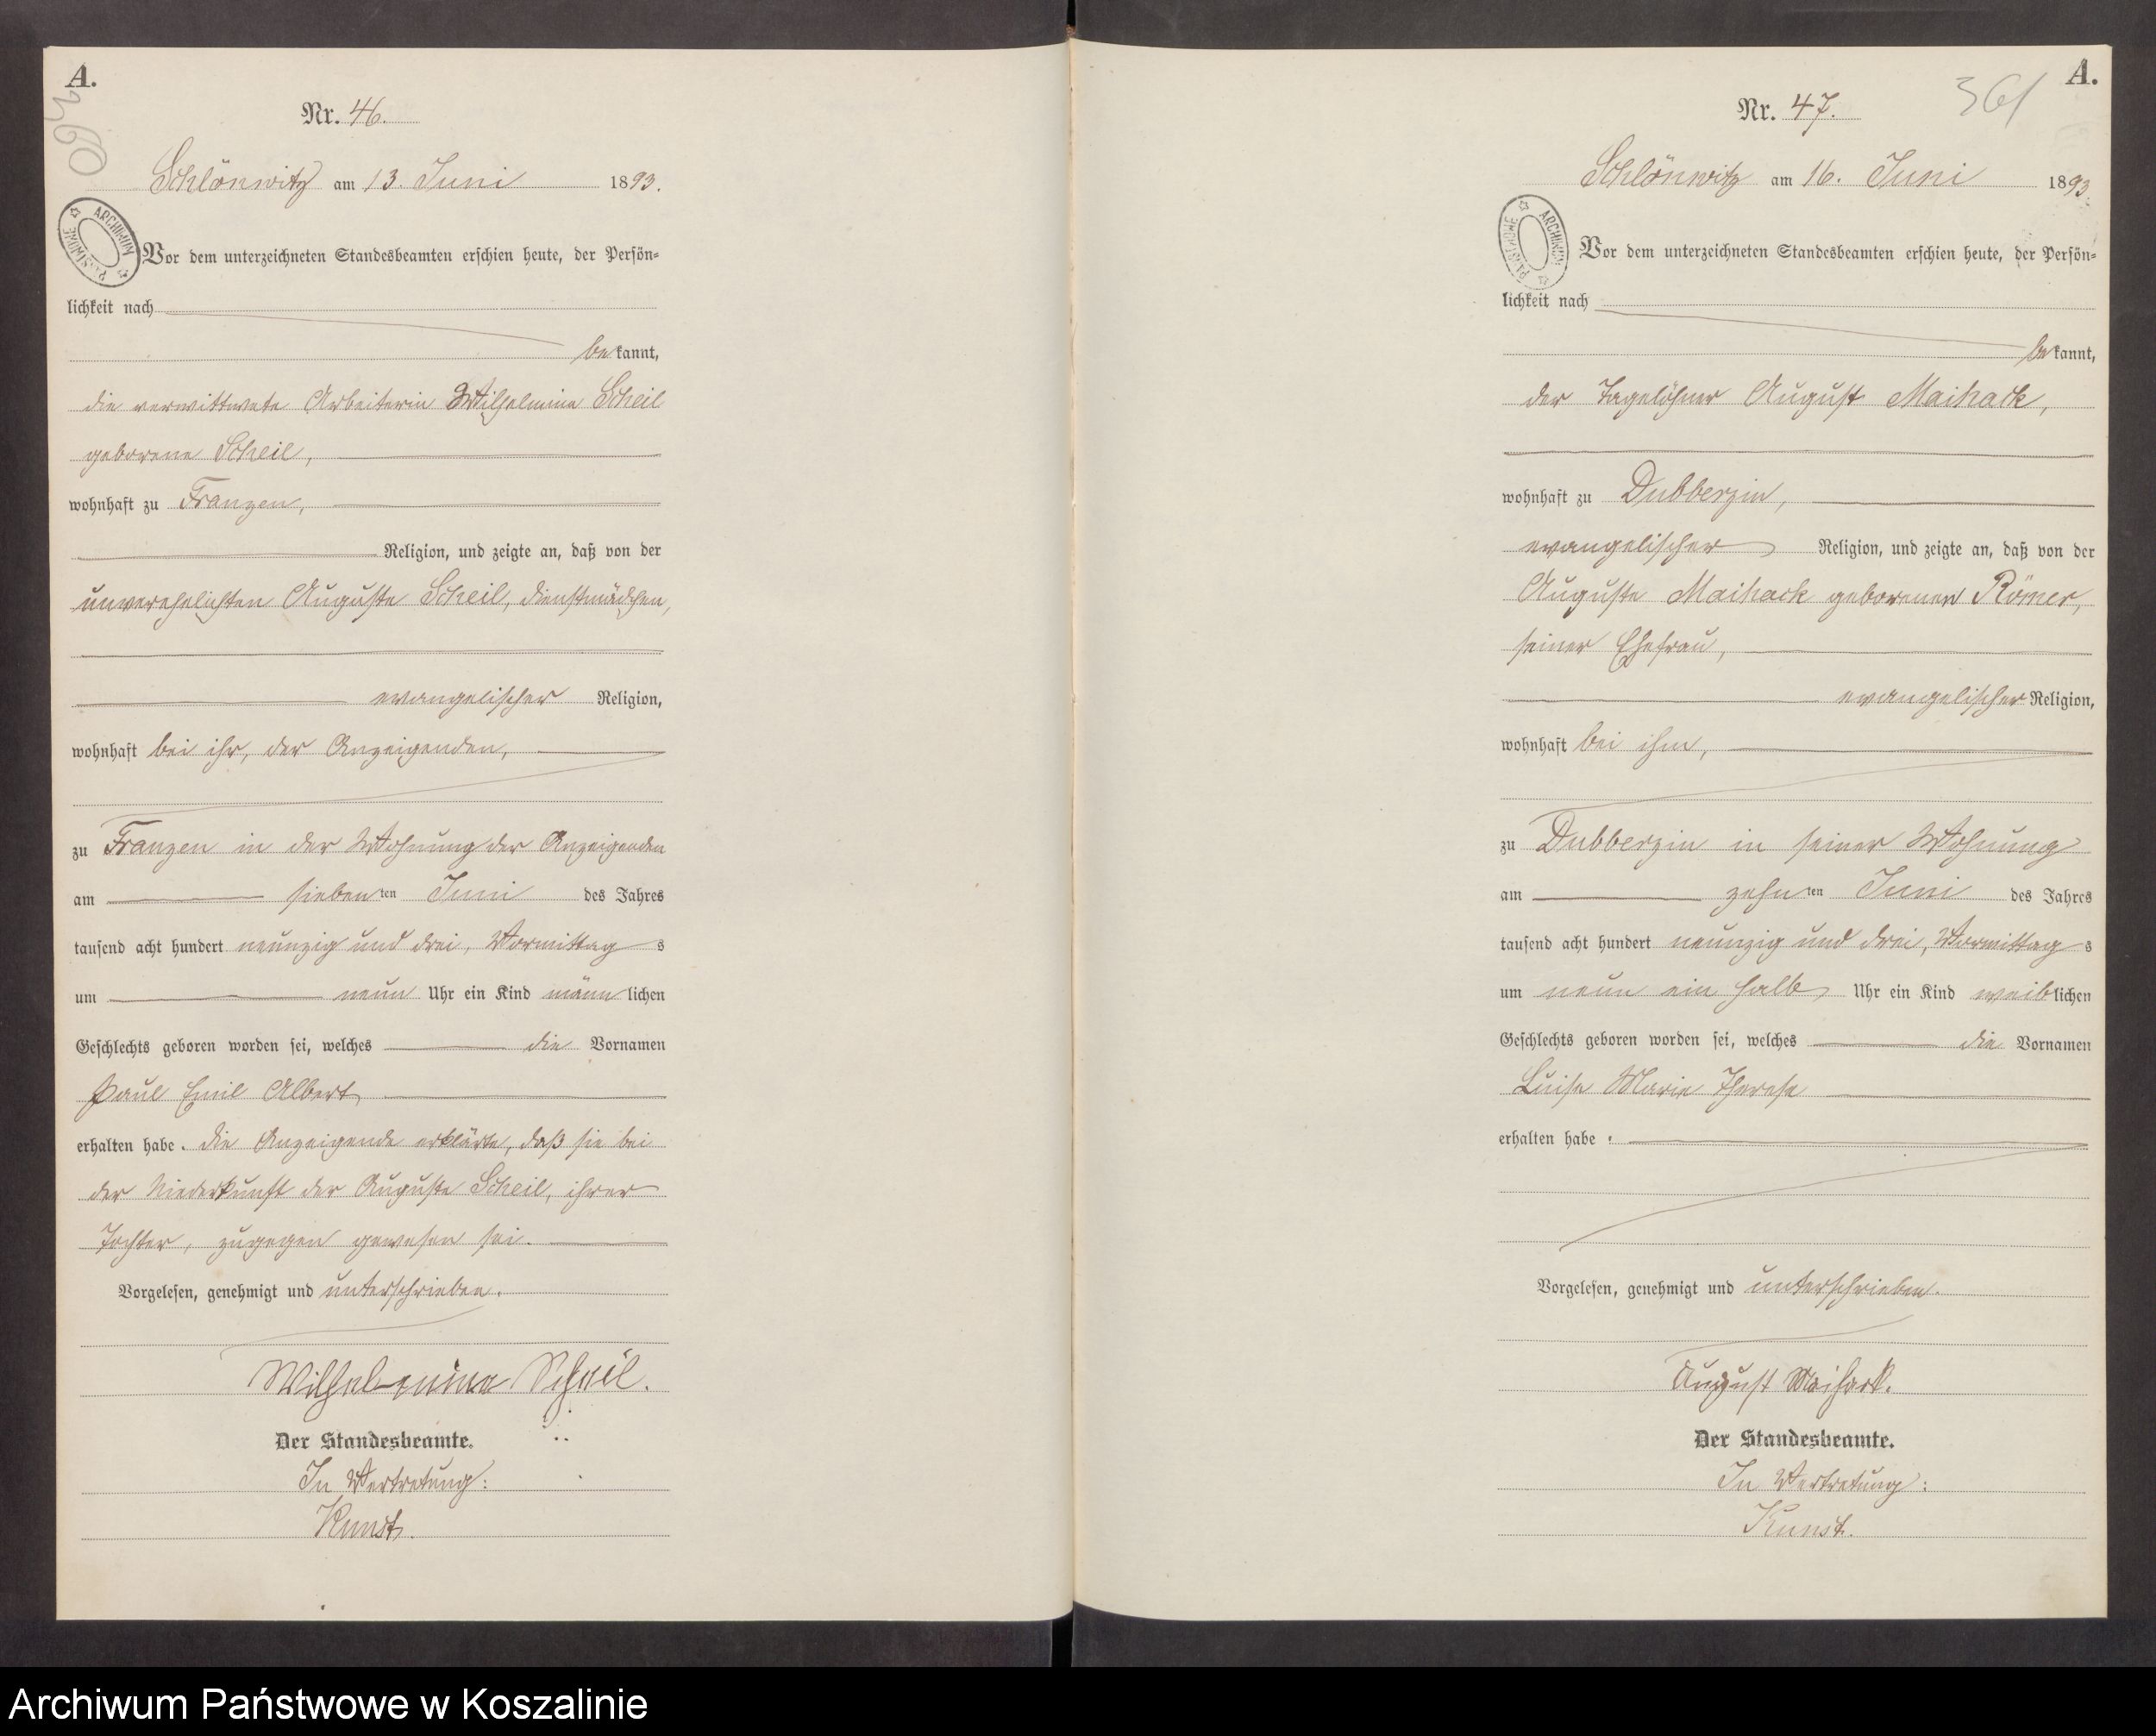 A.
360
Nr. 46.
Schlönwitz am 13. Juni 1893.
ARCHIWUM PAŃSTWOWE
Vor dem unterzeichneten Standesbeamten erschien heute, der Persön-
lichkeit nach
bekannt,
die verwittwete Arbeiterin Wilhelmine Scheil
geborene Scheil,
wohnhaft zu Franzen,
Religion, und zeigte an, daß von der
unverehelichten Auguste Scheil, Dienstmädchen,
evangelischer Religion,
wohnhaft bei ihr, der Anzeigenden,
zu Franzen in der Wohnung der Anzeigenden
am siebenten Juni des Jahres
tausend acht hundert neunzig und drei, Vormittags
um neun Uhr ein Kind männlichen
Geschlechts geboren worden sei, welches die Vornamen
Paul Emil Albert
erhalten habe. Die Anzeigende erklärte, daß sie bei
der Niederkunft der Auguste Scheil, ihrer
Tochter, zugegen gewesen sei.
Vorgelesen, genehmigt und unterschrieben.
Wilhelmine Scheil.
Der Standesbeamte.
In Vertretung:
Kunst.
A.
361
Nr. 47.
Schlönwitz am 16. Juni 1893.
ARCHIWUM PAŃSTWOWE
Vor dem unterzeichneten Standesbeamten erschien heute, der Persön-
lichkeit nach
bekannt,
der Tagelöhner August Maihack,
wohnhaft zu Dubberzin,
evangelischer Religion, und zeigte an, daß von der
Auguste Maihack geborenen Römer,
seiner Ehefrau,
evangelischer Religion,
wohnhaft bei ihm,
zu Dubberzin in seiner Wohnung
am zehnten Juni des Jahres
tausend acht hundert neunzig und drei, Vormittags
um neun ein halb Uhr ein Kind weiblichen
Geschlechts geboren worden sei, welches die Vornamen
Luise Marie Therese
erhalten habe.
Vorgelesen, genehmigt und unterschrieben.
August Maihack.
Der Standesbeamte.
In Vertretung:
Kunst.
Archiwum Państwowe w Koszalinie